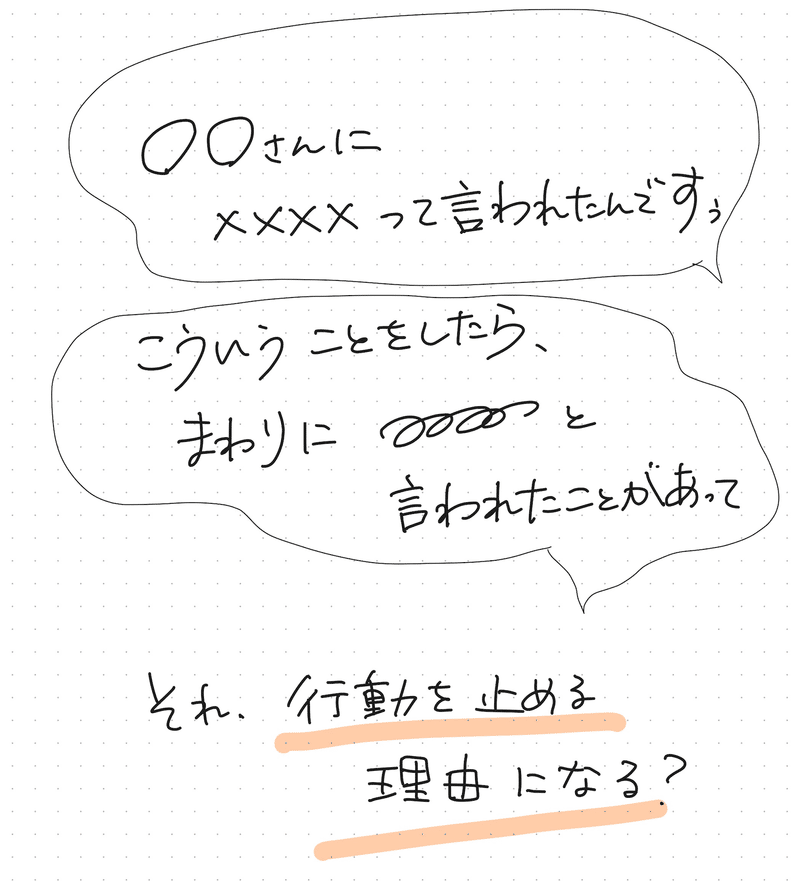 〇〇さんに
××××って言われたんですぅ
こういうことをしたら、
まわりに と
言われたことがあって
それ、行動を止める
理由になる?